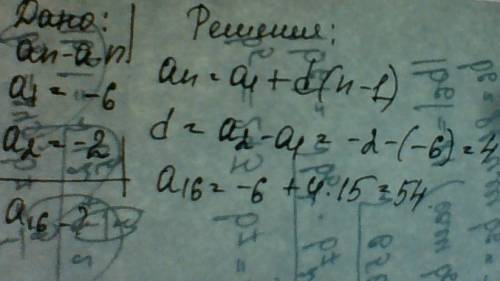 Дано:
an - a.n
a₁ = -6
a₂ = -2
a₁₆ - ?
Решение:
an = a₁ + d(n-1)
d = a₂ - a₁ = -2 - (-6) = 4
a₁₆ = -6 + 4·15 = 54